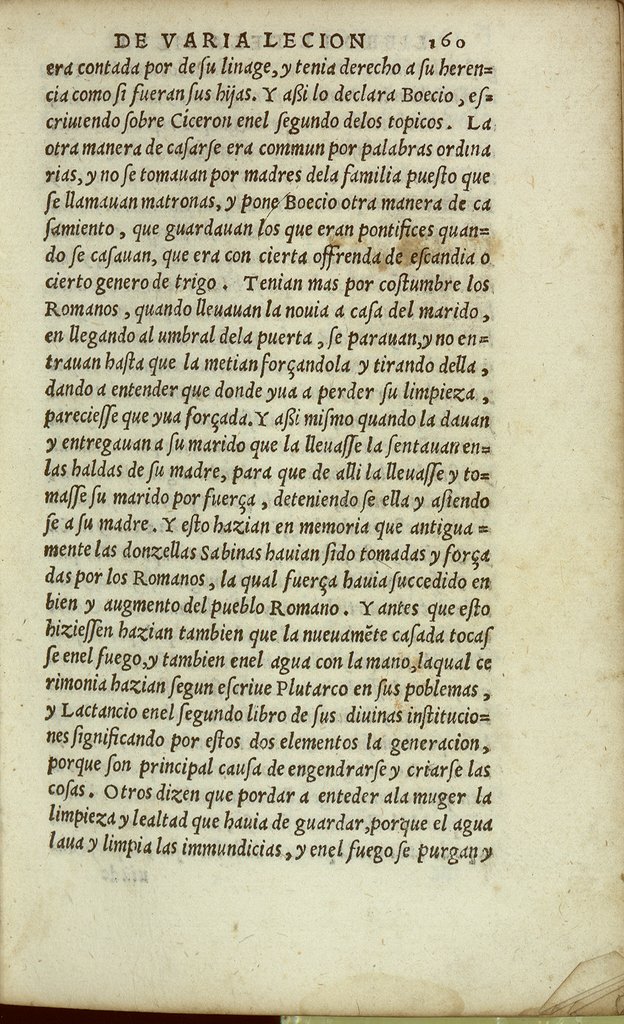 DE VARIA LECION 160
era contada por de ſu linage, y tenia derecho a ſu heren=
cia como ſi fueran ſus hijas. Y aßi lo declara Boecio, eſ=
criuiendo ſobre Ciceron enel ſegundo delos topicos. La
otra manera de caſarse era commun por palabras ordina
rias, y no ſe tomauan por madres dela familia pueſto que
ſe llamauan matronas, y pone Boecio otra manera de ca
ſamiento, que guardauan los que eran pontifices quan=
do ſe caſauan, que era con cierta offrenda de eſcandia o
cierto genero de trigo. Tenian mas por coſtumbre los
Romanos, quando lleuauan la nouia a caſa del marido,
en llegando al umbral dela puerta, ſe parauan, y no en=
trauan haſta que la metian forçandola y tirando della,
dando a entender que donde yua a perder ſu limpieza,
pareciesſe que yua forçada. Y aßi miſmo quando la dauan
y entregauan a ſu marido que la lleuaſſe la ſentauan en=
las haldas de ſu madre, para que de alli la lleuaſſe y to=
maſſe ſu marido por fuerça, deteniendo ſe ella y aſiendo
ſe a ſu madre. Y eſto hazian en memoria que antigua=
mente las donzellas Sabinas hauian ſido tomadas y força
das por los Romanos, la qual fuerça hauia ſuccedido en
bien y augmento del pueblo Romano. Y antes que eſto
hizieſſen hazian tambien que la nueuamẽte caſada tocaſ
ſe enel fuego, y tambien enel agua con la mano, laqual ce
rimonia hazian ſegun eſcriue Plutarco en ſus poblemas,
y Lactancio enel ſegundo libro de ſus diuinas inſtitucio=
nes ſignificando por eſtos dos elementos la generacion,
porque ſon principal cauſa de engendrarſe y criarſe las
coſas. Otros dizen que pordar a enteder ala muger la
limpieza y lealtad que hauia de guardar, porque el agua
laua y limpia las immundicias, y enel fuego ſe purgan y